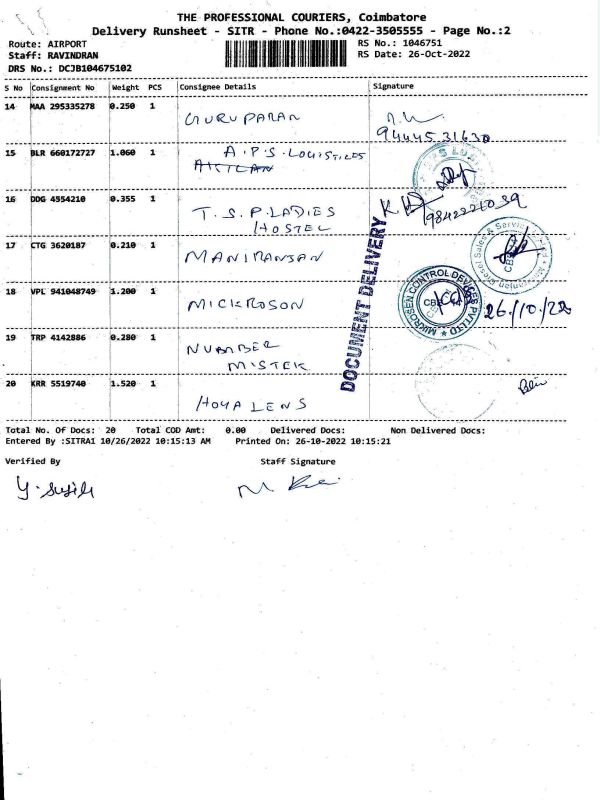 THE PROFESSIONAL COURIERS, Coimbatore
Delivery Runsheet - SITR - Phone No.:0422-3505555 - Page No.:2
Route: AIRPORT
RS No.: 1046751
Staff: RAVINDRAN
RS Date: 26-Oct-2022
DRS No.: DCJB104675102
S No Consignment No Weight PCS Consignee Details Signature
14 MAA 295335278 0.250 1
GURUPARAN
94445 31630
15 BLR 660172727 1.060 1
A.P.S. LOGISTICS
16 DDG 4554210 0.355 1
T.S.P. LADIES
HOSTEL
17 CTG 3620187 0.210 1
MANIRANJAN
18 VPL 941048749 1.200 1
MICKROSON
26/10/22
19 TRP 4142886 0.280 1
NUMBER
MISTEK
20 KRR 5519740 1.520 1
HOYA LENS
DOCUMENT DELIVERY
MIKROSEN CONTROL DEVICES PVT LTD
Diesel Sales & Service
Total No. Of Docs: 20 Total COD Amt: 0.00 Delivered Docs: Non Delivered Docs:
Entered By :SITRA1 10/26/2022 10:15:13 AM Printed On: 26-10-2022 10:15:21
Verified By Staff Signature